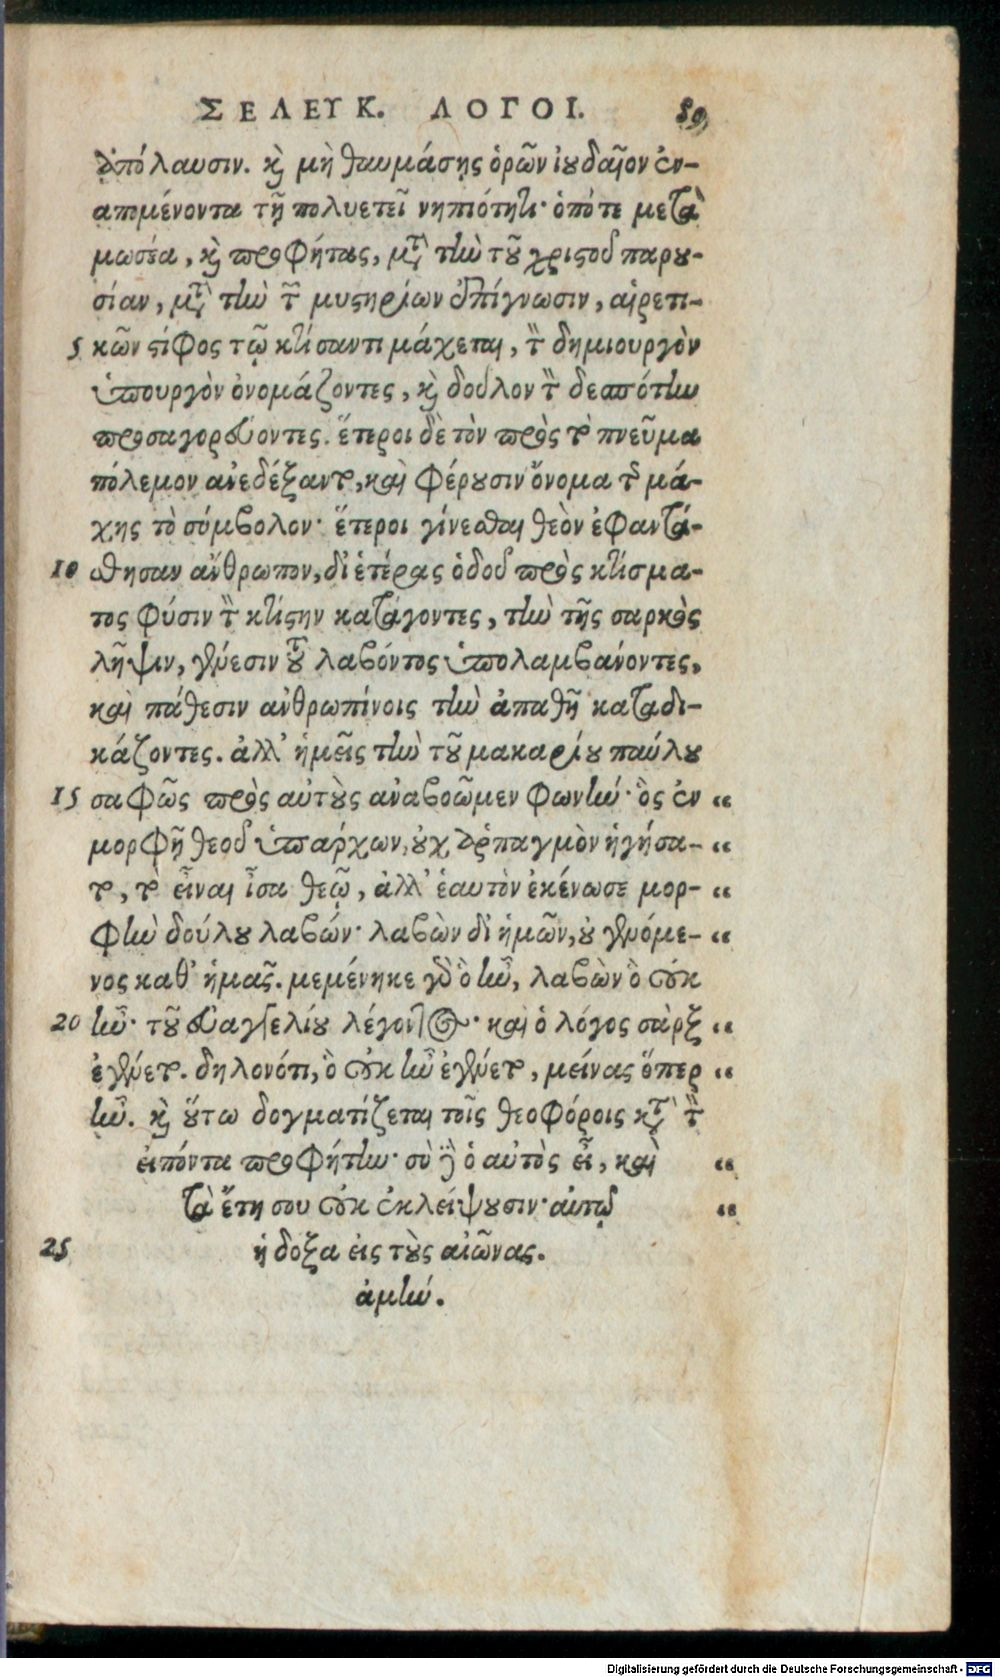 ΣΕΛΕΥΚ. ΛΟΓΟΙ. 89
ἀπόλαυσιν. καὶ μὴ θαυμάσῃς ὁρῶν ἰουδαῖον ἐν-
απομένοντα τῇ πολυετεῖ νηπιότητι· ὁπότε μετὰ
μωσέα, καὶ προφήτας, μετὰ τὴν τοῦ χριστοῦ παρου-
σίαν, μετὰ τὴν τῶν μυστηρίων ἐπίγνωσιν, αἱρετι-
5 κῶν στίφος τῷ κτίσαντι μάχεται, τὸν δημιουργὸν
ὑπουργὸν ὀνομάζοντες, καὶ δοῦλον τὸν δεσπότην
προσαγορεύοντες. ἕτεροι δὲ τὸν πρὸς τὸ πνεῦμα
πόλεμον ἀνεδέξαντο, καὶ φέρουσιν ὄνομα τῆς μά-
χης τὸ σύμβολον· ἕτεροι γίνεσθαι θεὸν ἐφαντά-
10 σθησαν ἄνθρωπον, δι' ἑτέρας ὁδοῦ πρὸς κτίσμα-
τος φύσιν τὸν κτίστην κατάγοντες, τὴν τῆς σαρκὸς
λῆψιν, γένεσιν τοῦ λαβόντος ὑπολαμβάνοντες,
καὶ πάθεσιν ἀνθρωπίνοις τὴν ἀπαθῆ καταδι-
κάζοντες. ἀλλ' ἡμεῖς τὴν τοῦ μακαρίου παύλου
15 σαφῶς πρὸς αὐτοὺς ἀναβοῶμεν φωνήν· ὃς ἐν “
μορφῇ θεοῦ ὑπάρχων, οὐχ ἁρπαγμὸν ἡγήσα- “
το, τὸ εἶναι ἶσα θεῷ, ἀλλ' ἑαυτὸν ἐκένωσε μορ- “
φὴν δούλου λαβών· λαβὼν δι' ἡμῶν, οὐ γενόμε- “
νος καθ' ἡμᾶς. μεμένηκε γὰρ ὃ ἦν, λαβὼν ὃ οὐκ
20 ἦν· τοῦ εὐαγγελίου λέγοντος· καὶ ὁ λόγος σὰρξ “
ἐγένετο. δηλονότι, ὃ οὐκ ἦν ἐγένετο, μείνας ὅπερ “
ἦν. καὶ οὕτω δογματίζεται τοῖς θεοφόροις κατὰ τὸν
εἰπόντα προφήτην· σὺ δὲ ὁ αὐτὸς εἶ, καὶ “
τὰ ἔτη σου οὐκ ἐκλείψουσιν· αὐτῷ “
25 ἡ δοξα εἰς τοὺς αἰῶνας.
ἀμήν.
Digitalisierung gefördert durch die Deutsche Forschungsgemeinschaft - DFG